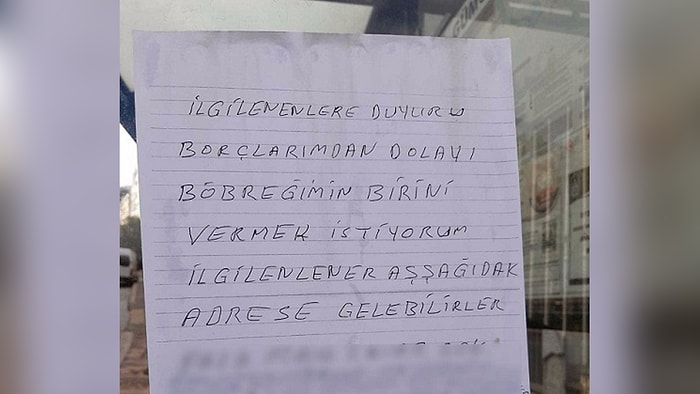 İLGİLENENLERE DUYURU
BORÇLARIMDAN DOLAYI
BÖBREĞİMİN BİRİNİ
VERMEK İSTİYORUM
İLGİLENLENER AŞŞAĞIDAK
ADRESE GELEBİLİRLER